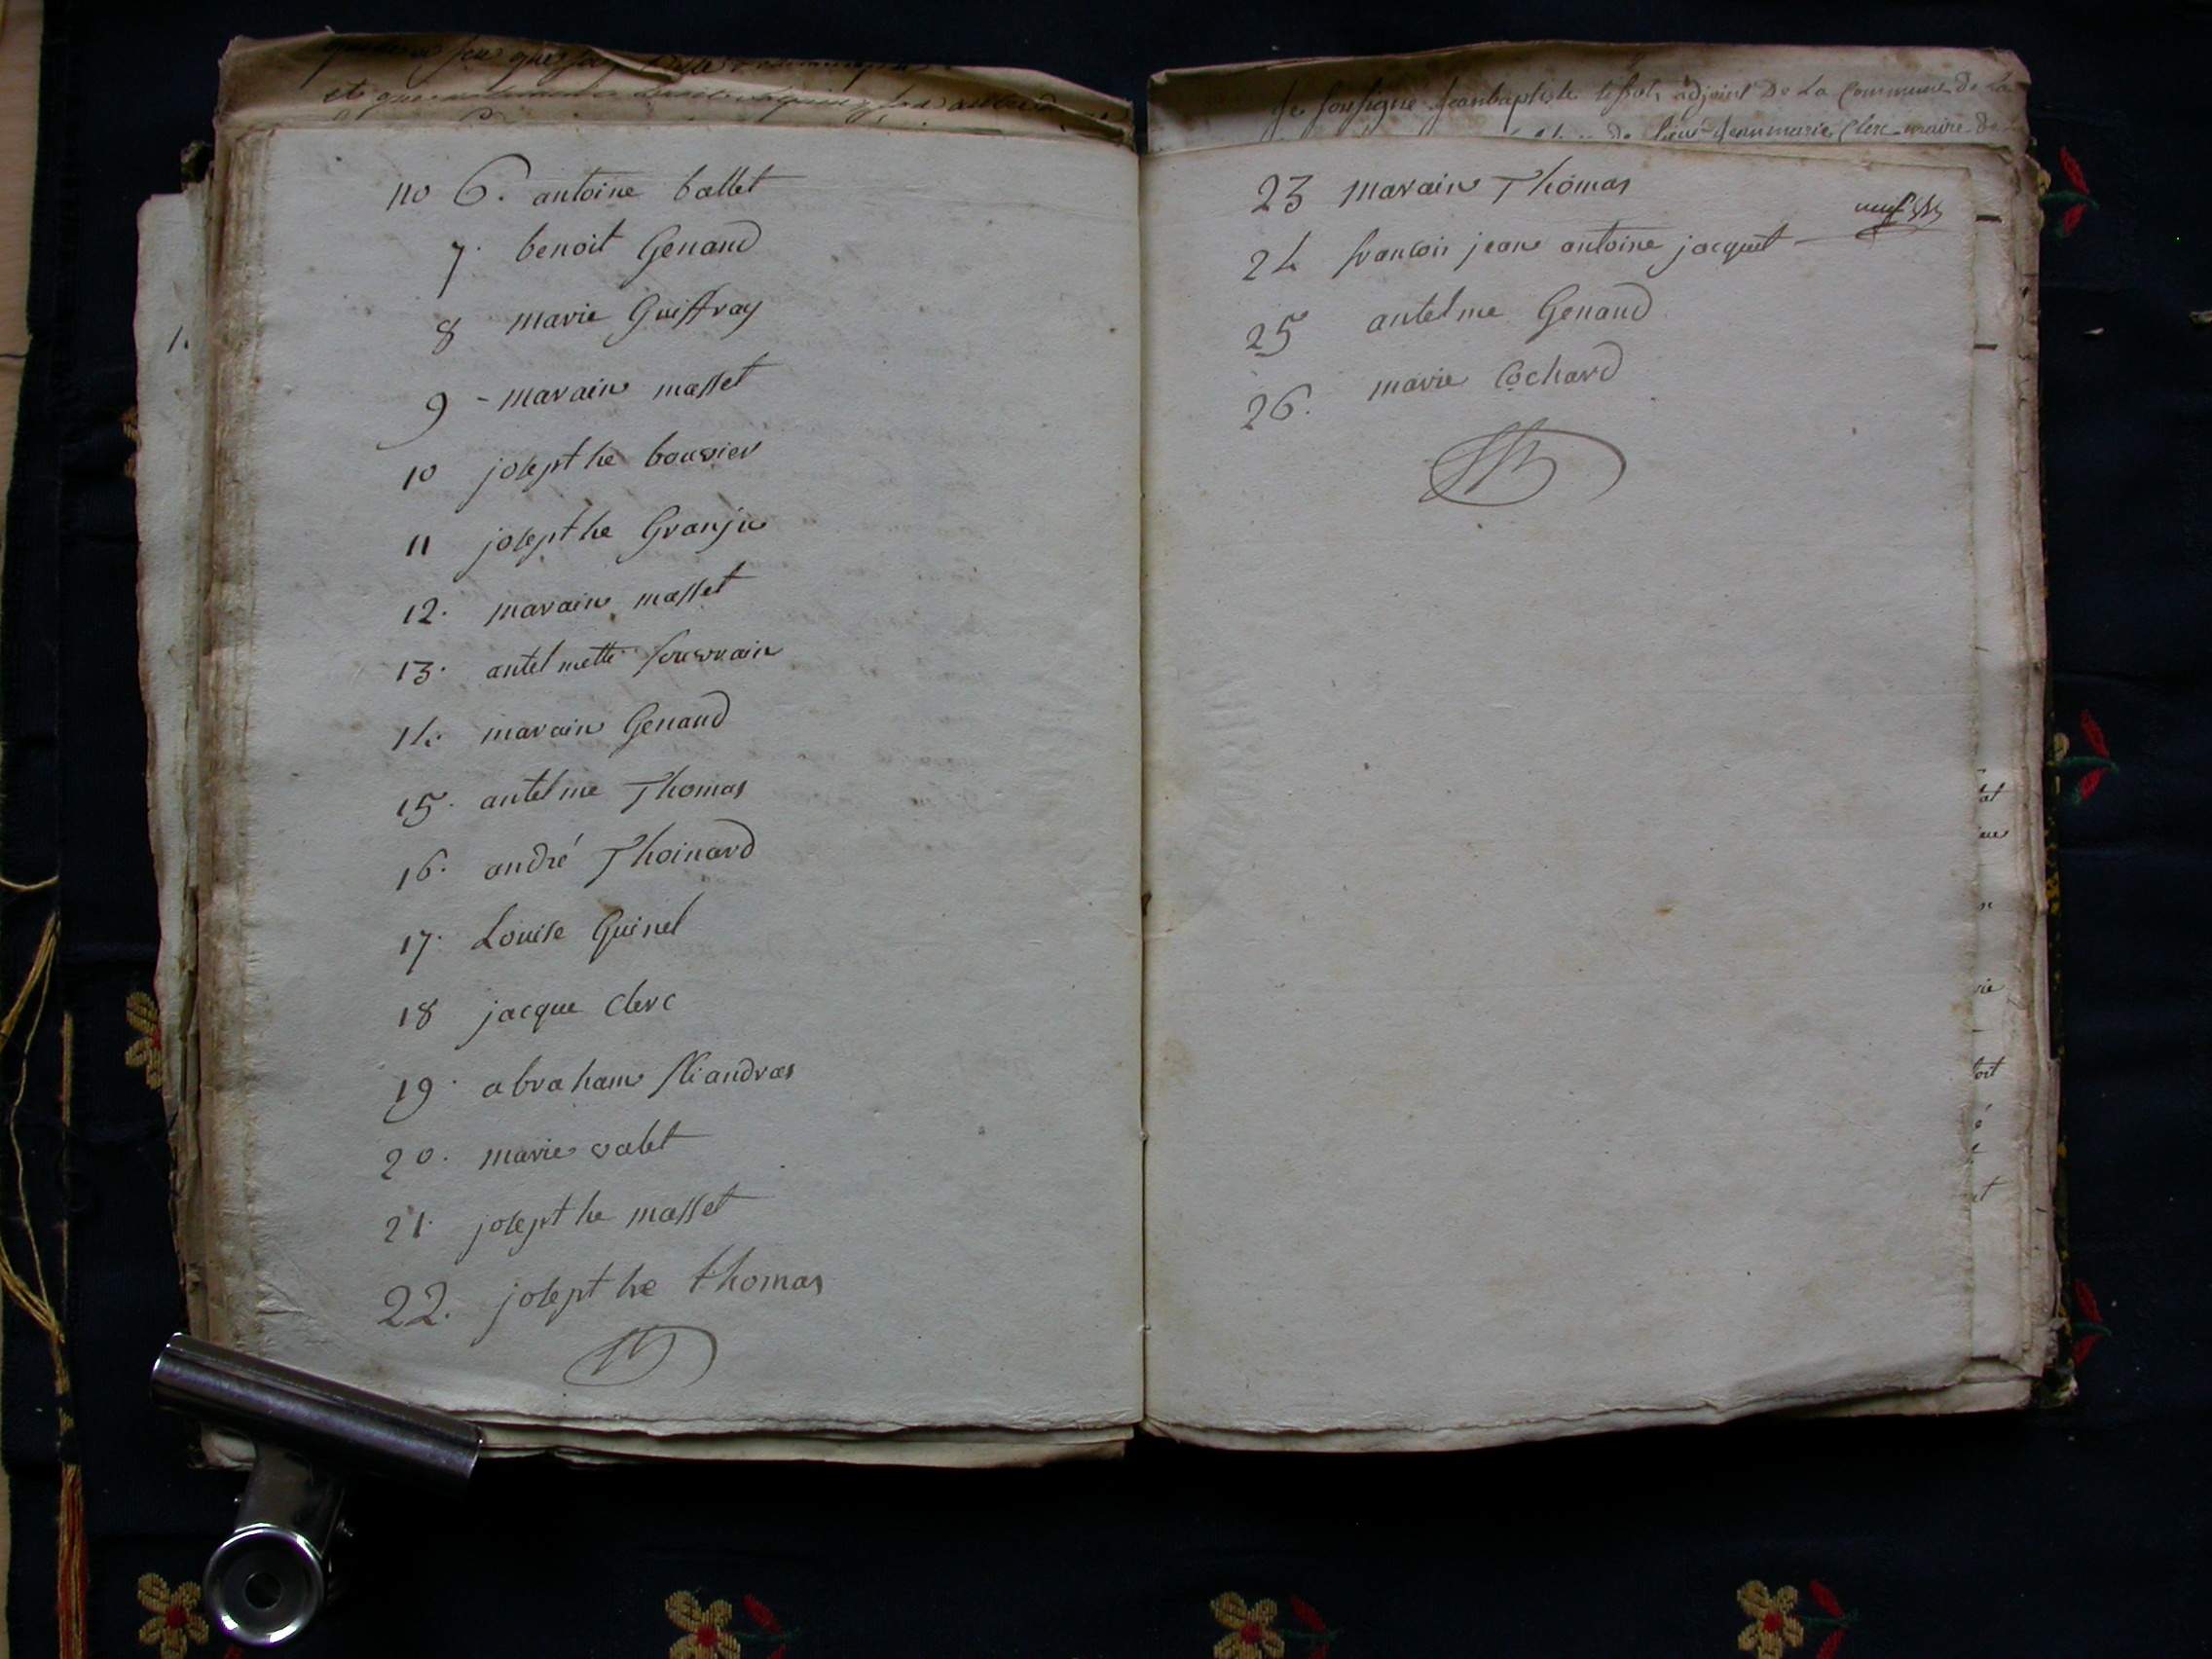 et que
no 6. antoine ballet
7. benoit Genand
8 marie Guiffray
9 - marain masset
10 josepthe bouvier
11 josepthe Granju
12. marain masset
13. antelmette souvrain
14. marain Genand
15. antelme Thomas
16. andré Thoinard
17. Louise Guinel
18 jacque Clerc
19. abraham
20. marie valet
21. josepthe masset
22. josepthe thomas
1.
Je soussigne Jeanbaptiste adjoint De La Commune De La
de Jeanmarie Clerc maire De
23 marain Thomas
24 francois jean antoine jacquet
25 antelme Genand
26. marie Cochard